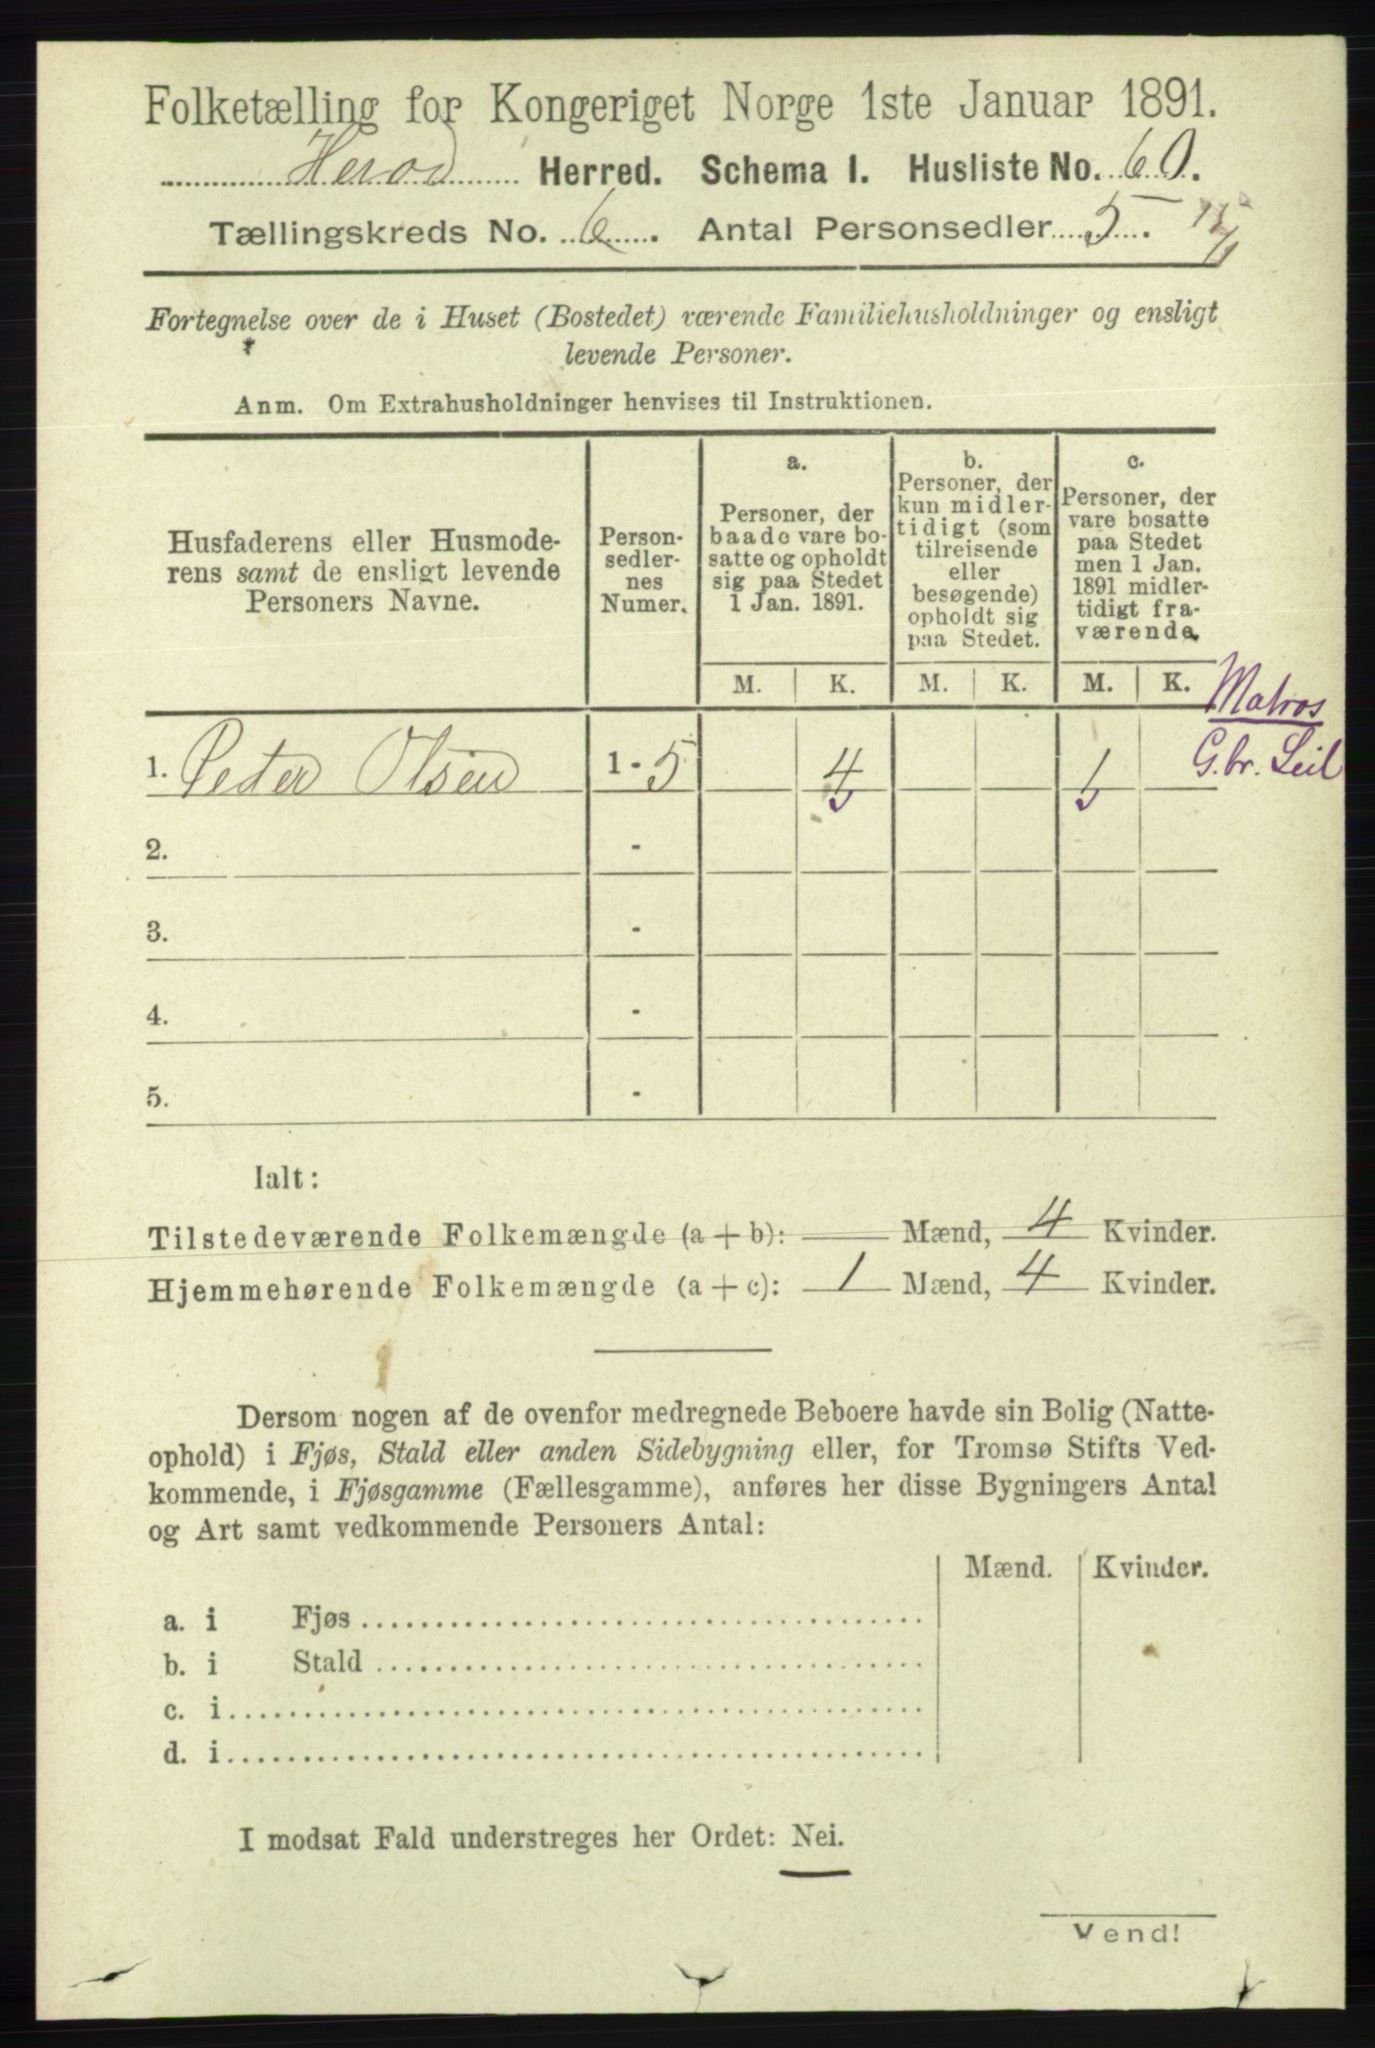 Folketælling for Kongeriget Norge 1ste Januar 1891.
Herød Herred. Schema I. Husliste No. 60.
Tællingskreds No. 6. Antal Personsedler 5.
Fortegnelse over de i Huset (Bostedet) værende Familiehusholdninger og ensligt
levende Personer.
Anm. Om Extrahusholdninger henvises til Instruktionen.
Husfaderens eller Husmode-
rens samt de ensligt levende
Personers Navne.
Person-
sedler-
nes
Numer.
a.
Personer, der
baade vare bo-
satte og opholdt
sig paa Stedet
1 Jan. 1891.
b.
Personer, der
kun midler-
tidigt (som
tilreisende
eller
besøgende)
opholdt sig
paa Stedet.
c.
Personer, der
vare bosatte
paa Stedet
men 1 Jan.
1891 midler-
tidigt fra-
værende.
M. K. M. K. M. K.
Matros
G.br. Leil
1. Peder Olsen 1 - 5 4 1
2. -
3. -
4. -
5. -
Ialt:
Tilstedeværende Folkemængde (a + b): — Mænd, 4 Kvinder.
Hjemmehørende Folkemængde (a + c): 1 Mænd, 4 Kvinder.
Dersom nogen af de ovenfor medregnede Beboere havde sin Bolig (Natte-
ophold) i Fjøs, Stald eller anden Sidebygning eller, for Tromsø Stifts Ved-
kommende, i Fjøsgamme (Fællesgamme), anføres her disse Bygningers Antal
og Art samt vedkommende Personers Antal:
Mænd. Kvinder.
a. i Fjøs
b. i Stald
c. i
d. i
I modsat Fald understreges her Ordet: Nei.
Vend!